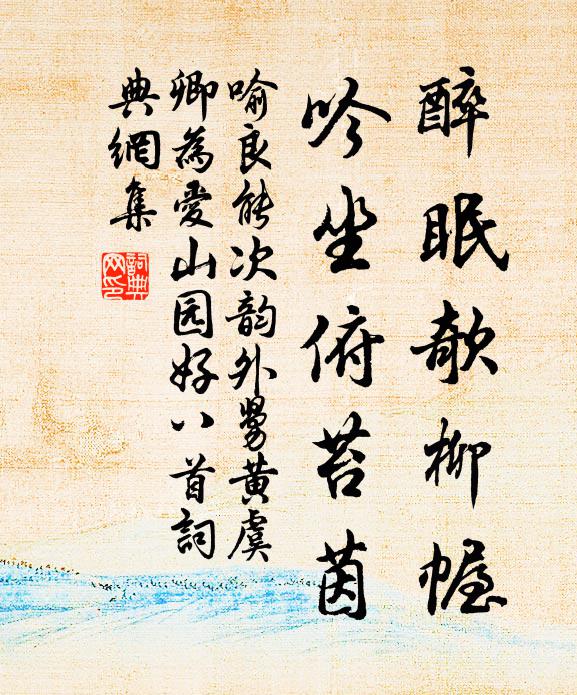 醉眠欹柳幄
吟坐俯苔茵
喻良能次韵外舅黄虞
卿為愛山园好八首詞
典網集
詞典網印